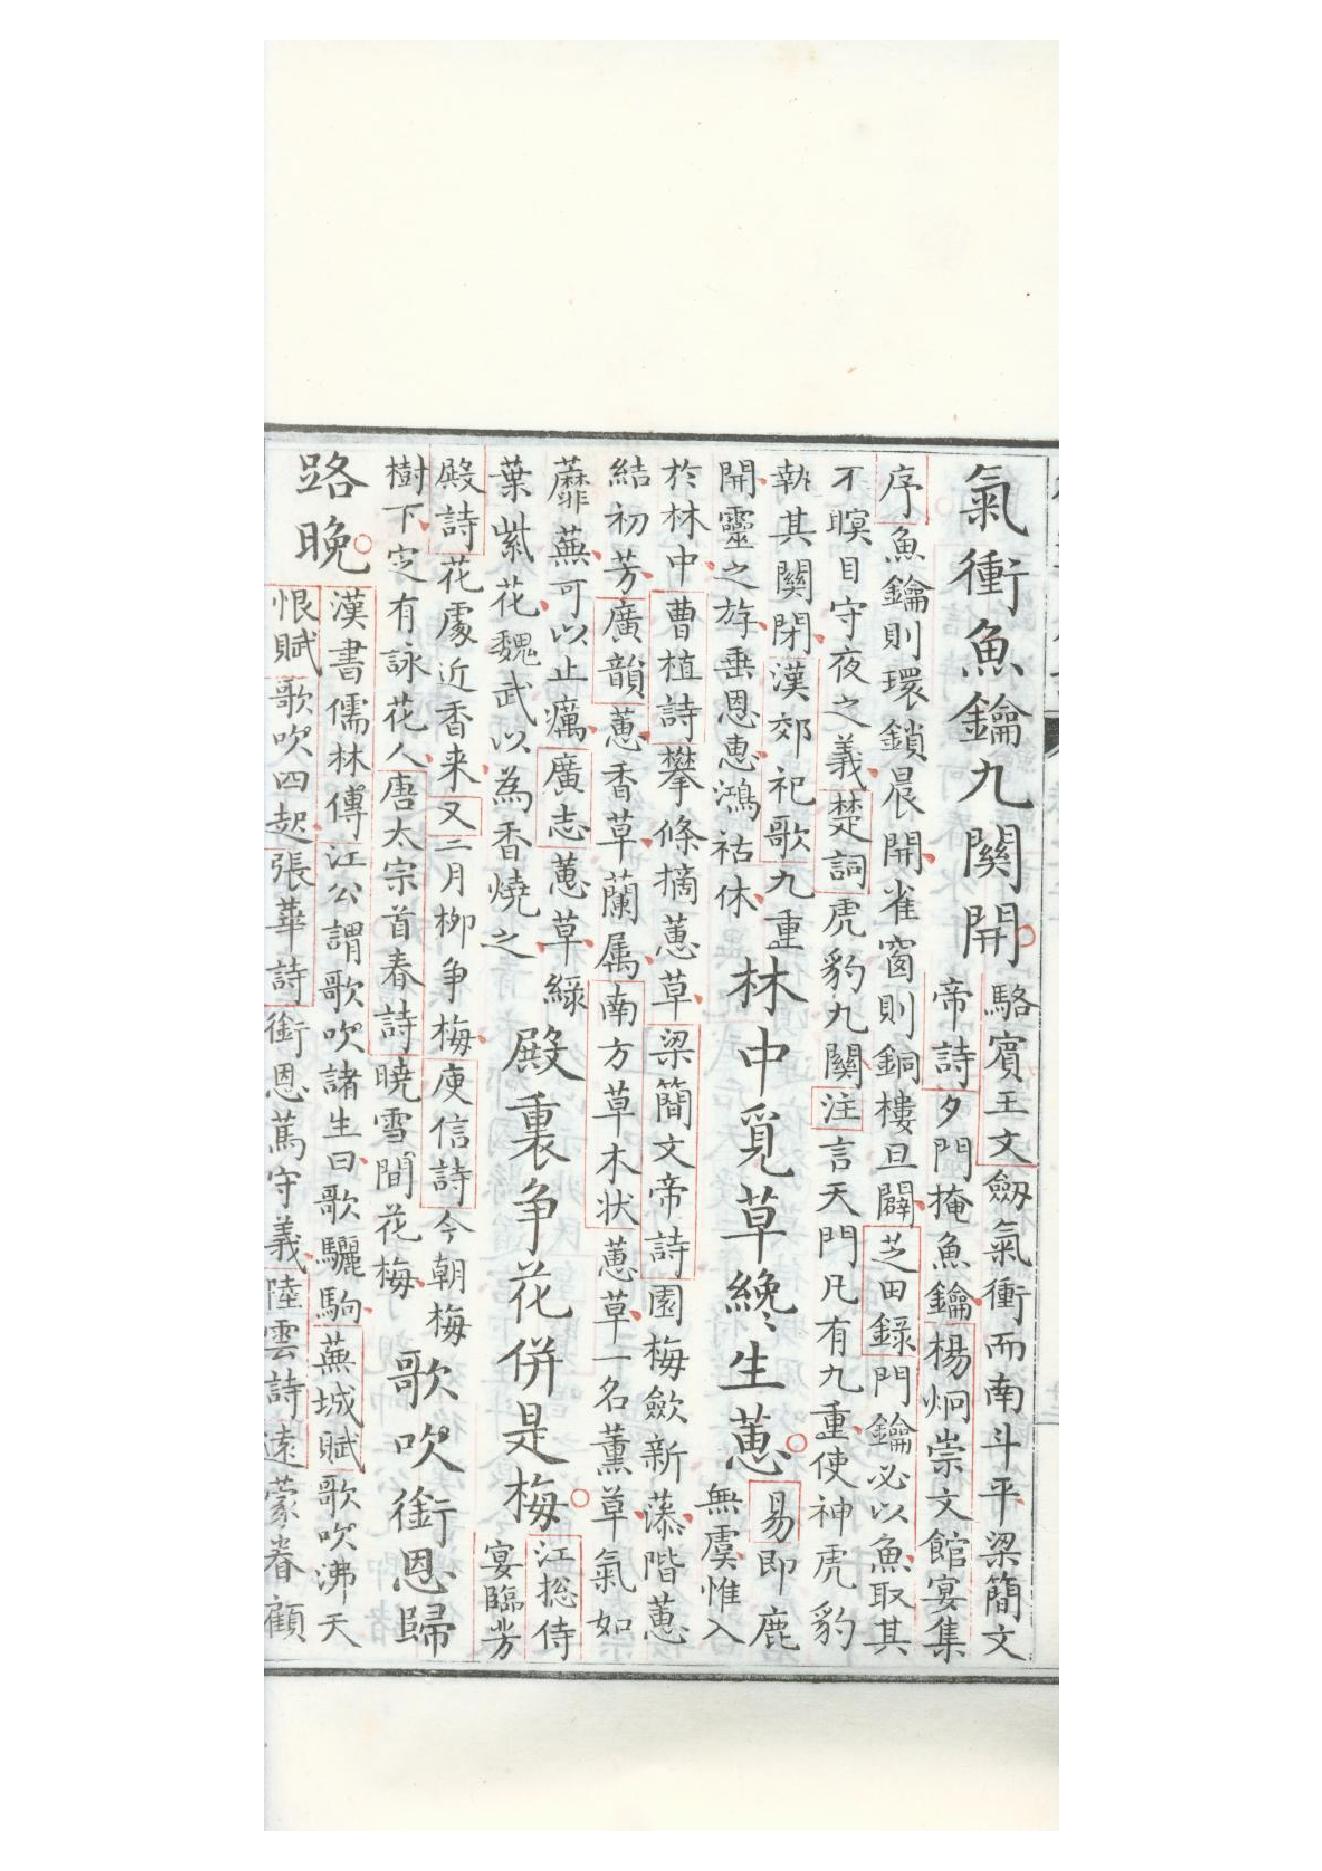 氣衝魚鑰九關開
駱賓王文劔氣衝而南斗平梁簡文
帝詩夕門掩魚鑰楊炯崇文館宴集
序魚鑰則環鎖晨開雀窗則銅樓旦闢芝田録門鑰必以魚取其
不暝目守夜之義楚詞虎豹九關注言天門凡有九重使神虎豹
執其關閉漢郊祀歌九重
開靈之斿垂恩惠鴻祜休
林中覓草纔生蕙
易即鹿
無虞惟入
於林中曹植詩攀條摘蕙草梁簡文帝詩園梅斂新藻階蕙
結初芳廣韻蕙香草蘭属南方草木状蕙草一名薰草氣如
蘼蕪可以止癘廣志蕙草綠
葉紫花魏武以為香燒之
殿裏争花併是梅
江捴侍
宴臨芳
殿詩花處近香来又二月柳争梅庾信詩今朝梅
樹下定有詠花人唐太宗首春詩曉雪間花梅
歌吹銜恩歸
路晚
漢書儒林傅江公謂歌吹諸生曰歌驪駒蕪城賦歌吹沸天
恨賦歌吹四起張華詩銜恩篤守義陸雲詩遠蒙眷顧